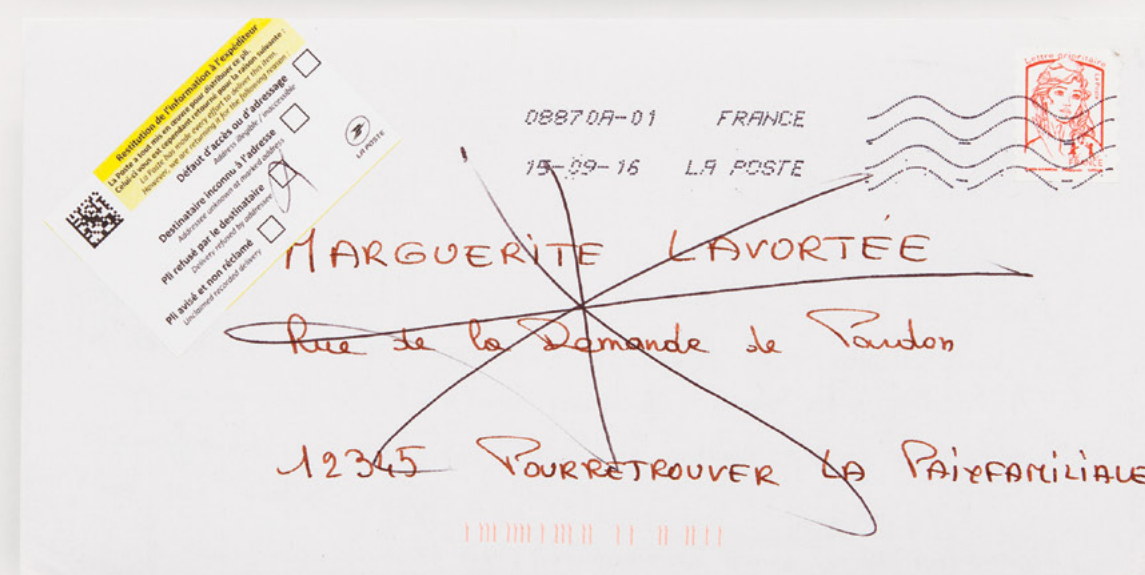 Restitution de l'information à l'expéditeur
La Poste a tout mis en œuvre pour distribuer ce pli.
Celui-ci vous est cependant retourné pour la raison suivante :
La Poste has made every effort to deliver this item.
However, we are returning it for the following reason :
Défaut d'accès ou d'adressage
Address illegible / inaccessible
Destinataire inconnu à l'adresse
Addressee unknown at marked address
Pli refusé par le destinataire
Delivery refused by addressee
Pli avisé et non réclamé
Unclaimed recorded delivery
LA POSTE
08870A-01 FRANCE
15-09-16 LA POSTE
Lettre prioritaire
MARGUERITE LAVORTÉE
Rue de la Demande de Pardon
12345 POURRETROUVER LA PAIXFAMILIALE